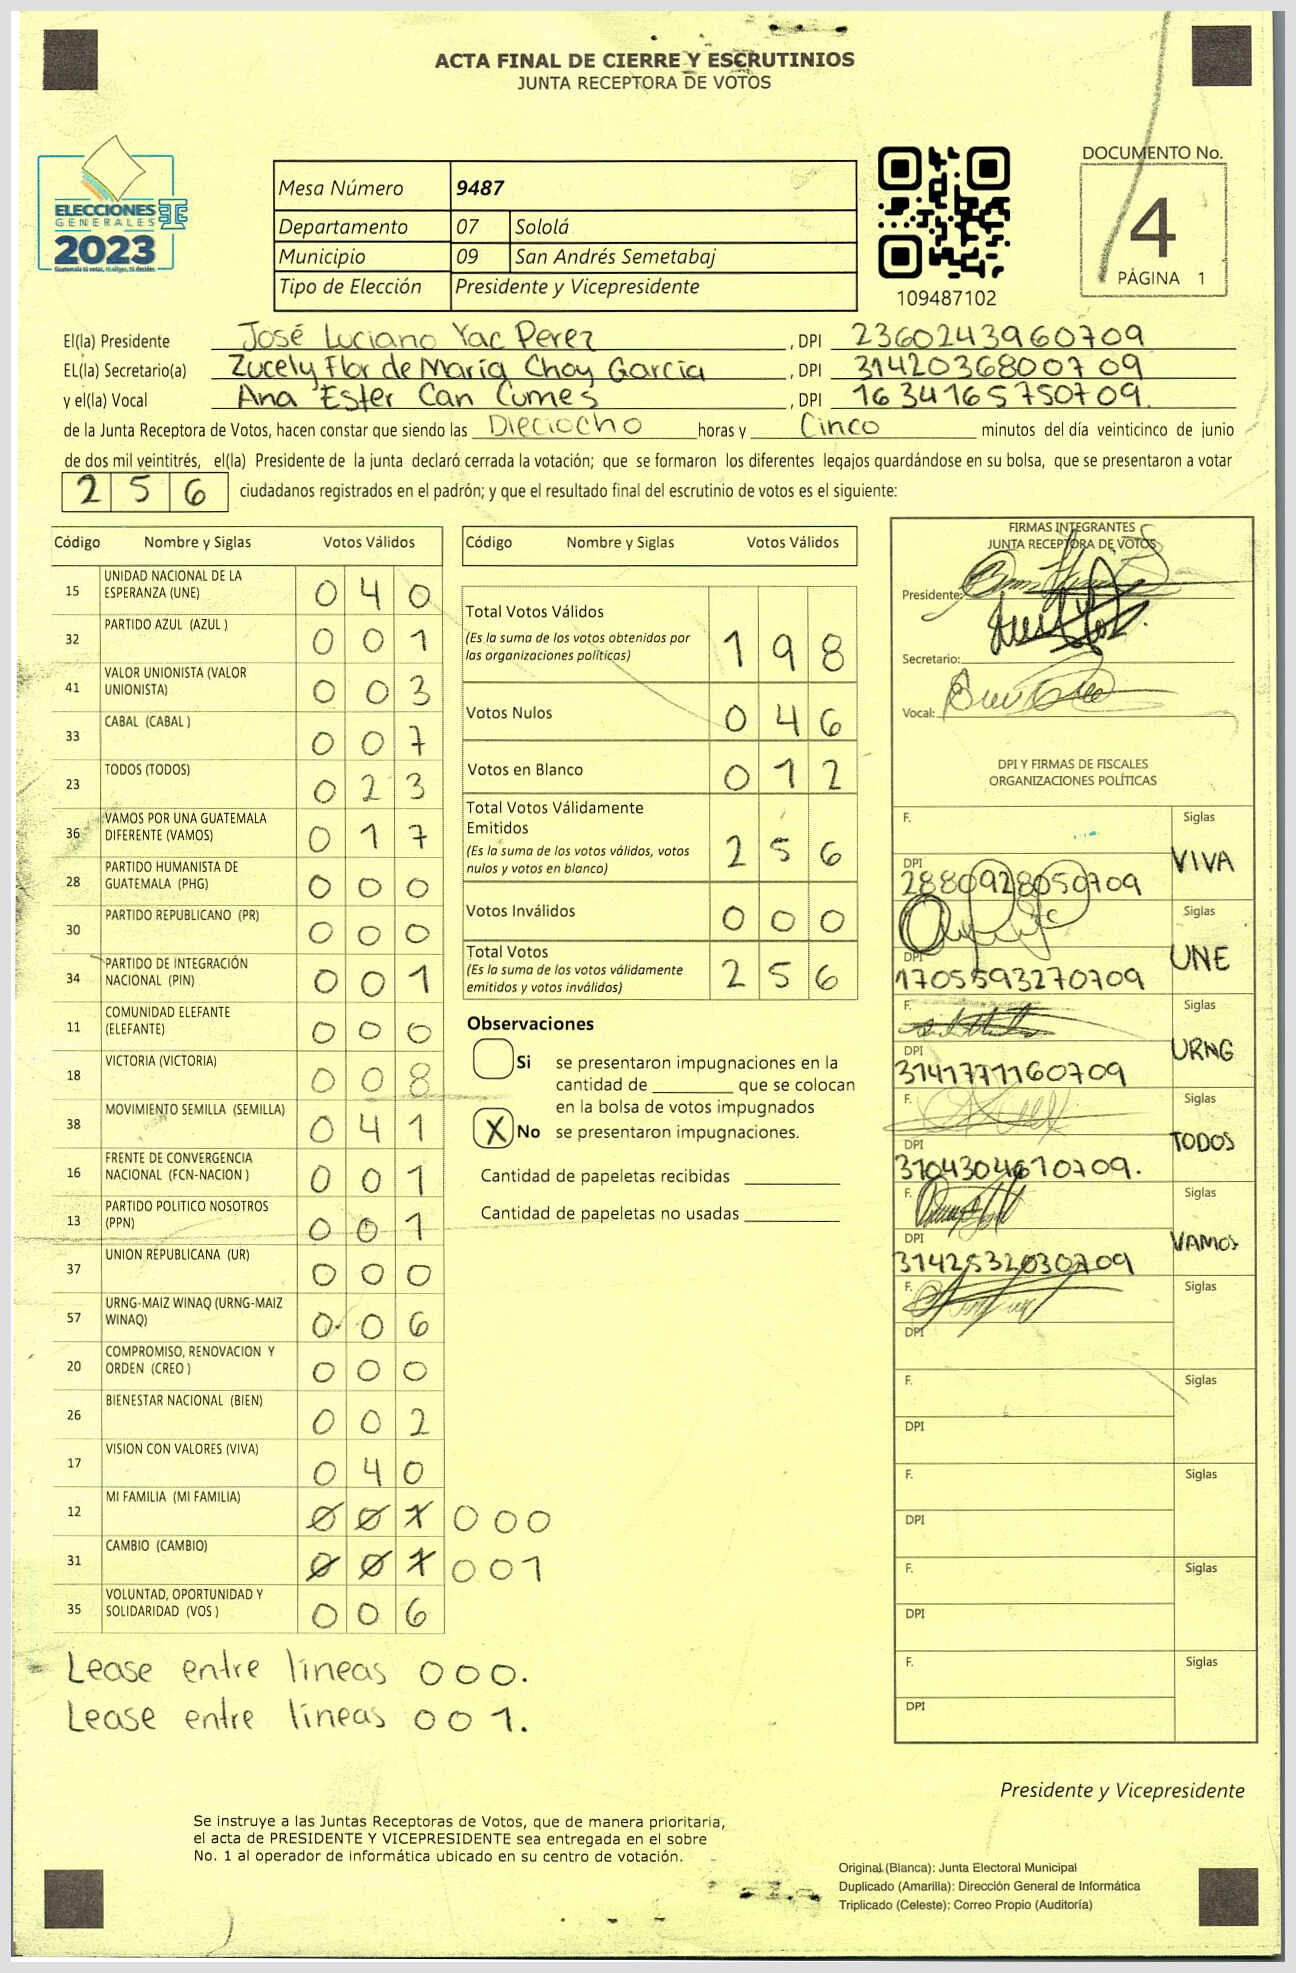 ACTA FINAL DE CIERRE Y ESCRUTINIOS
JUNTA RECEPTORA DE VOTOS
ELECCIONES
GENERALES
2023
Guatemala tú votas, tú eliges, tú decides
Mesa Número 9487
Departamento 07 Sololá
Municipio 09 San Andrés Semetabaj
Tipo de Elección Presidente y Vicepresidente
109487102
DOCUMENTO No.
4
PÁGINA 1
El(la) Presidente José Luciano Yac Perez , DPI 2360243960709
EL(la) Secretario(a) Zucely Flor de María Choy García , DPI 3142036800709
y el(la) Vocal Ana Ester Can Cumes , DPI 1634165750709.
de la Junta Receptora de Votos, hacen constar que siendo las Dieciocho horas y Cinco minutos del día veinticinco de junio
de dos mil veintitrés, el(la) Presidente de la junta declaró cerrada la votación; que se formaron los diferentes legajos guardándose en su bolsa, que se presentaron a votar
256 ciudadanos registrados en el padrón; y que el resultado final del escrutinio de votos es el siguiente:
Código Nombre y Siglas Votos Válidos
15 UNIDAD NACIONAL DE LA ESPERANZA (UNE) 040
32 PARTIDO AZUL (AZUL ) 001
41 VALOR UNIONISTA (VALOR UNIONISTA) 003
33 CABAL (CABAL ) 007
23 TODOS (TODOS) 023
36 VAMOS POR UNA GUATEMALA DIFERENTE (VAMOS) 017
28 PARTIDO HUMANISTA DE GUATEMALA (PHG) 000
30 PARTIDO REPUBLICANO (PR) 000
34 PARTIDO DE INTEGRACIÓN NACIONAL (PIN) 001
11 COMUNIDAD ELEFANTE (ELEFANTE) 000
18 VICTORIA (VICTORIA) 008
38 MOVIMIENTO SEMILLA (SEMILLA) 041
16 FRENTE DE CONVERGENCIA NACIONAL (FCN-NACION ) 001
13 PARTIDO POLITICO NOSOTROS (PPN) 001
37 UNION REPUBLICANA (UR) 000
57 URNG-MAIZ WINAQ (URNG-MAIZ WINAQ) 006
20 COMPROMISO, RENOVACION Y ORDEN (CREO ) 000
26 BIENESTAR NACIONAL (BIEN) 002
17 VISION CON VALORES (VIVA) 040
12 MI FAMILIA (MI FAMILIA) 001 000
31 CAMBIO (CAMBIO) 001 001
35 VOLUNTAD, OPORTUNIDAD Y SOLIDARIDAD (VOS ) 006
Lease entre líneas 000.
Lease entre líneas 001.
Código Nombre y Siglas Votos Válidos
Total Votos Válidos 198
(Es la suma de los votos obtenidos por
las organizaciones políticas)
Votos Nulos 046
Votos en Blanco 012
Total Votos Válidamente
Emitidos 256
(Es la suma de los votos válidos, votos
nulos y votos en blanco)
Votos Inválidos 000
Total Votos 256
(Es la suma de los votos válidamente
emitidos y votos inválidos)
Observaciones
Si se presentaron impugnaciones en la
cantidad de que se colocan
en la bolsa de votos impugnados
X No se presentaron impugnaciones.
Cantidad de papeletas recibidas
Cantidad de papeletas no usadas
FIRMAS INTEGRANTES
JUNTA RECEPTORA DE VOTOS
Presidente:
Secretario:
Vocal:
DPI Y FIRMAS DE FISCALES
ORGANIZACIONES POLÍTICAS
F. Siglas
VIVA
DPI 2880928050709
Siglas
UNE
DPI 1705593270709
F. Siglas
URNG
DPI 3141771160709
F. Siglas
TODOS
DPI 3104304610709.
F. Siglas
VAMOS
DPI 3142532030709
F. Siglas
DPI
F. Siglas
DPI
F. Siglas
DPI
F. Siglas
DPI
F. Siglas
DPI
Presidente y Vicepresidente
Se instruye a las Juntas Receptoras de Votos, que de manera prioritaria,
el acta de PRESIDENTE Y VICEPRESIDENTE sea entregada en el sobre
No. 1 al operador de informática ubicado en su centro de votación.
Original (Blanca): Junta Electoral Municipal
Duplicado (Amarilla): Dirección General de Informática
Triplicado (Celeste): Correo Propio (Auditoría)